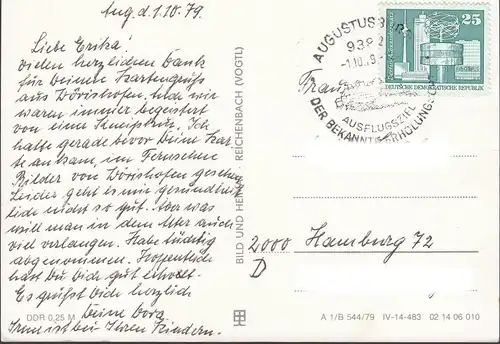 Aug. d. 1.10.79.
Liebe Erika!
vielen herzlichen Dank
für Deinen Kartengruß
aus Wörishofen. Auch wir
waren immer begeistert
von einer Kneippkur. Ich
hatte gerade bevor Deine Kar-
te ankam, im Fernsehen
Bilder von Wörishofen gesehen.
Leider geht es mir gesundheit-
lich nicht so gut. Aber was
will man in dem Alter auch
viel verlangen. Habe tüchtig
abgenommen. Hoffentlich
hast Du Dich gut erholt.
Es grüßt Dich herzlich
Deine Dora
Irene ist bei Ihren Kindern.
DDR 0,25 M
BILD UND HEIMAT REICHENBACH (VOGTL)
AUGUSTUSBURG
938
-1.10.79
AUSFLUGSZIEL
DER BEKANNTE ERHOLUNGS-
25
DEUTSCHE DEMOKRATISCHE REPUBLIK
Frau
2000 Hamburg 72
D
A 1/B 544/79 IV-14-483 02 14 06 010